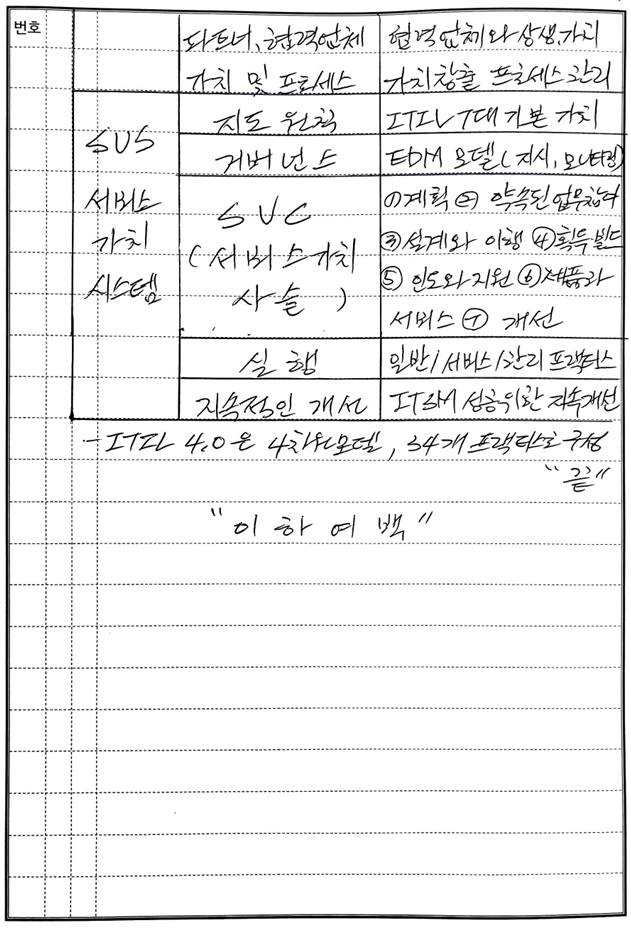 번호
파트너, 협력업체 협력업체와 상생, 가치
가치 및 프로세스 가치창출 프로세스 관리
SVS 지도 원칙 ITIL 7대 기본 가치
거버넌스 EDM 모델(지시, 모니터링)
서비스 SVC ①계획 ② 약속된 업무참여
가치 (서비스가치 ③설계와 이행 ④획득빌드
시스템 사슬) ⑤ 인도와 지원 ⑥제품과
서비스 ⑦ 개선
실행 일반/서비스/관리 프랙티스
지속적인 개선 ITSM 성공위한 지속개선
- ITIL 4.0은 4차원모델, 34개 프랙티스로 구성
"끝"
"이 하 여 백"